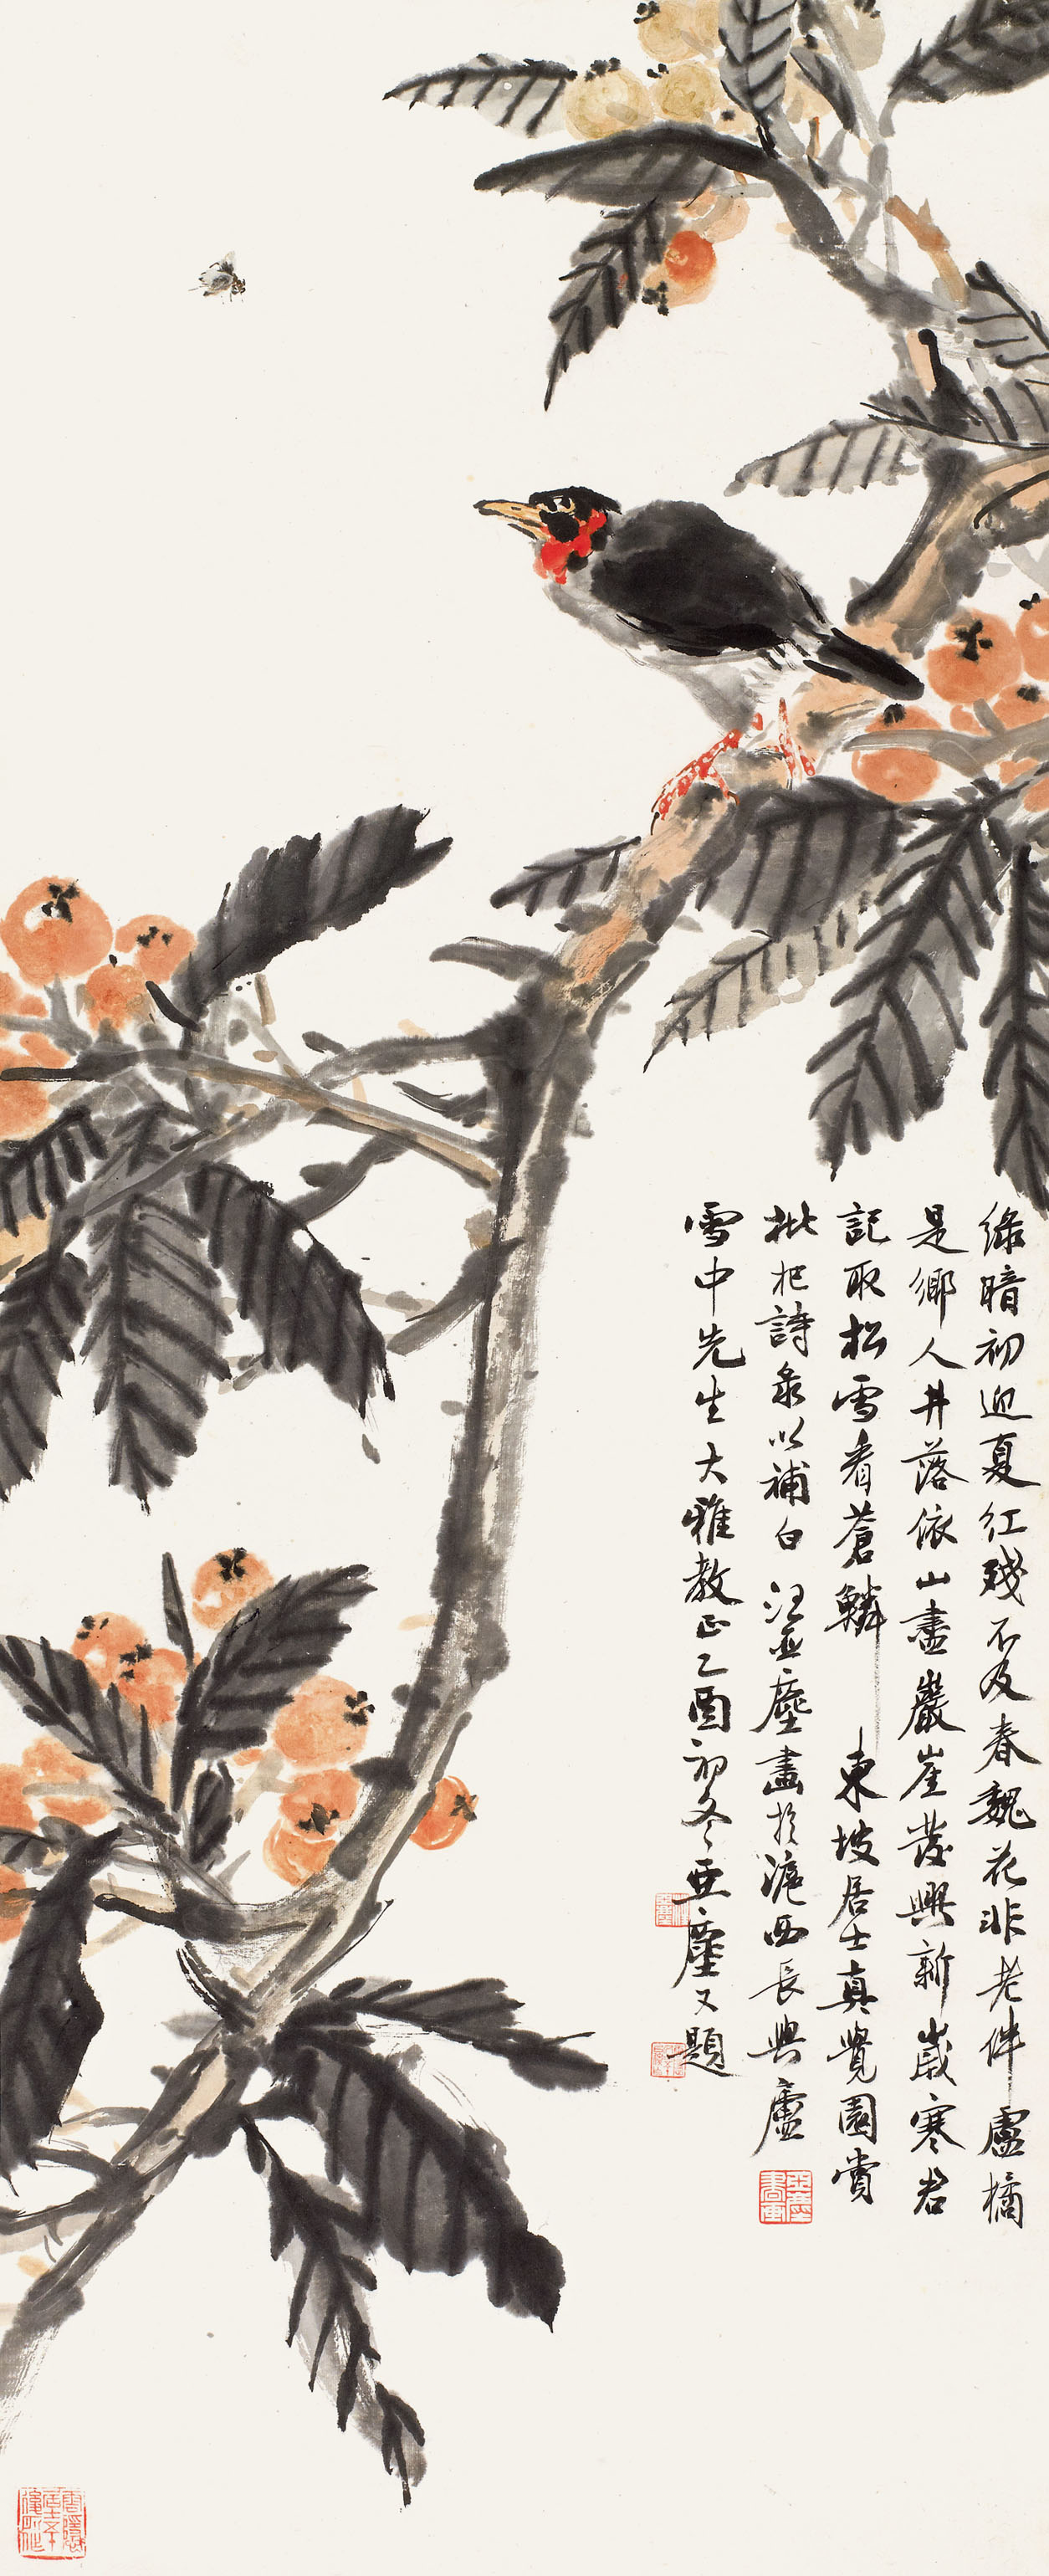 綠暗初迎夏紅殘不及春魏花非老伴盧橘
是鄉人井落依山盡巖崖發興新歲寒君
記取松雪看蒼鱗 東坡居士真覺園賞
枇杷詩彔以補白 汪亞塵畫於滬西長興廬
雪中先生大雅教正乙酉初冬亞塵又題